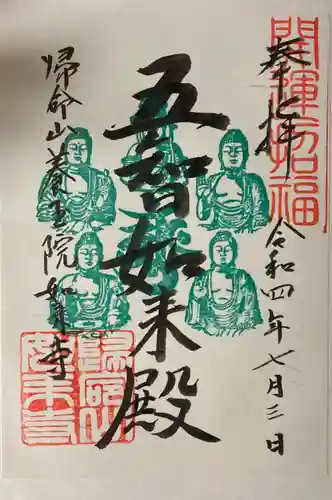 開運招福
奉拝
令和四年七月三日
五智如来殿
帰命山養玉院如来寺
帰命山
如来寺